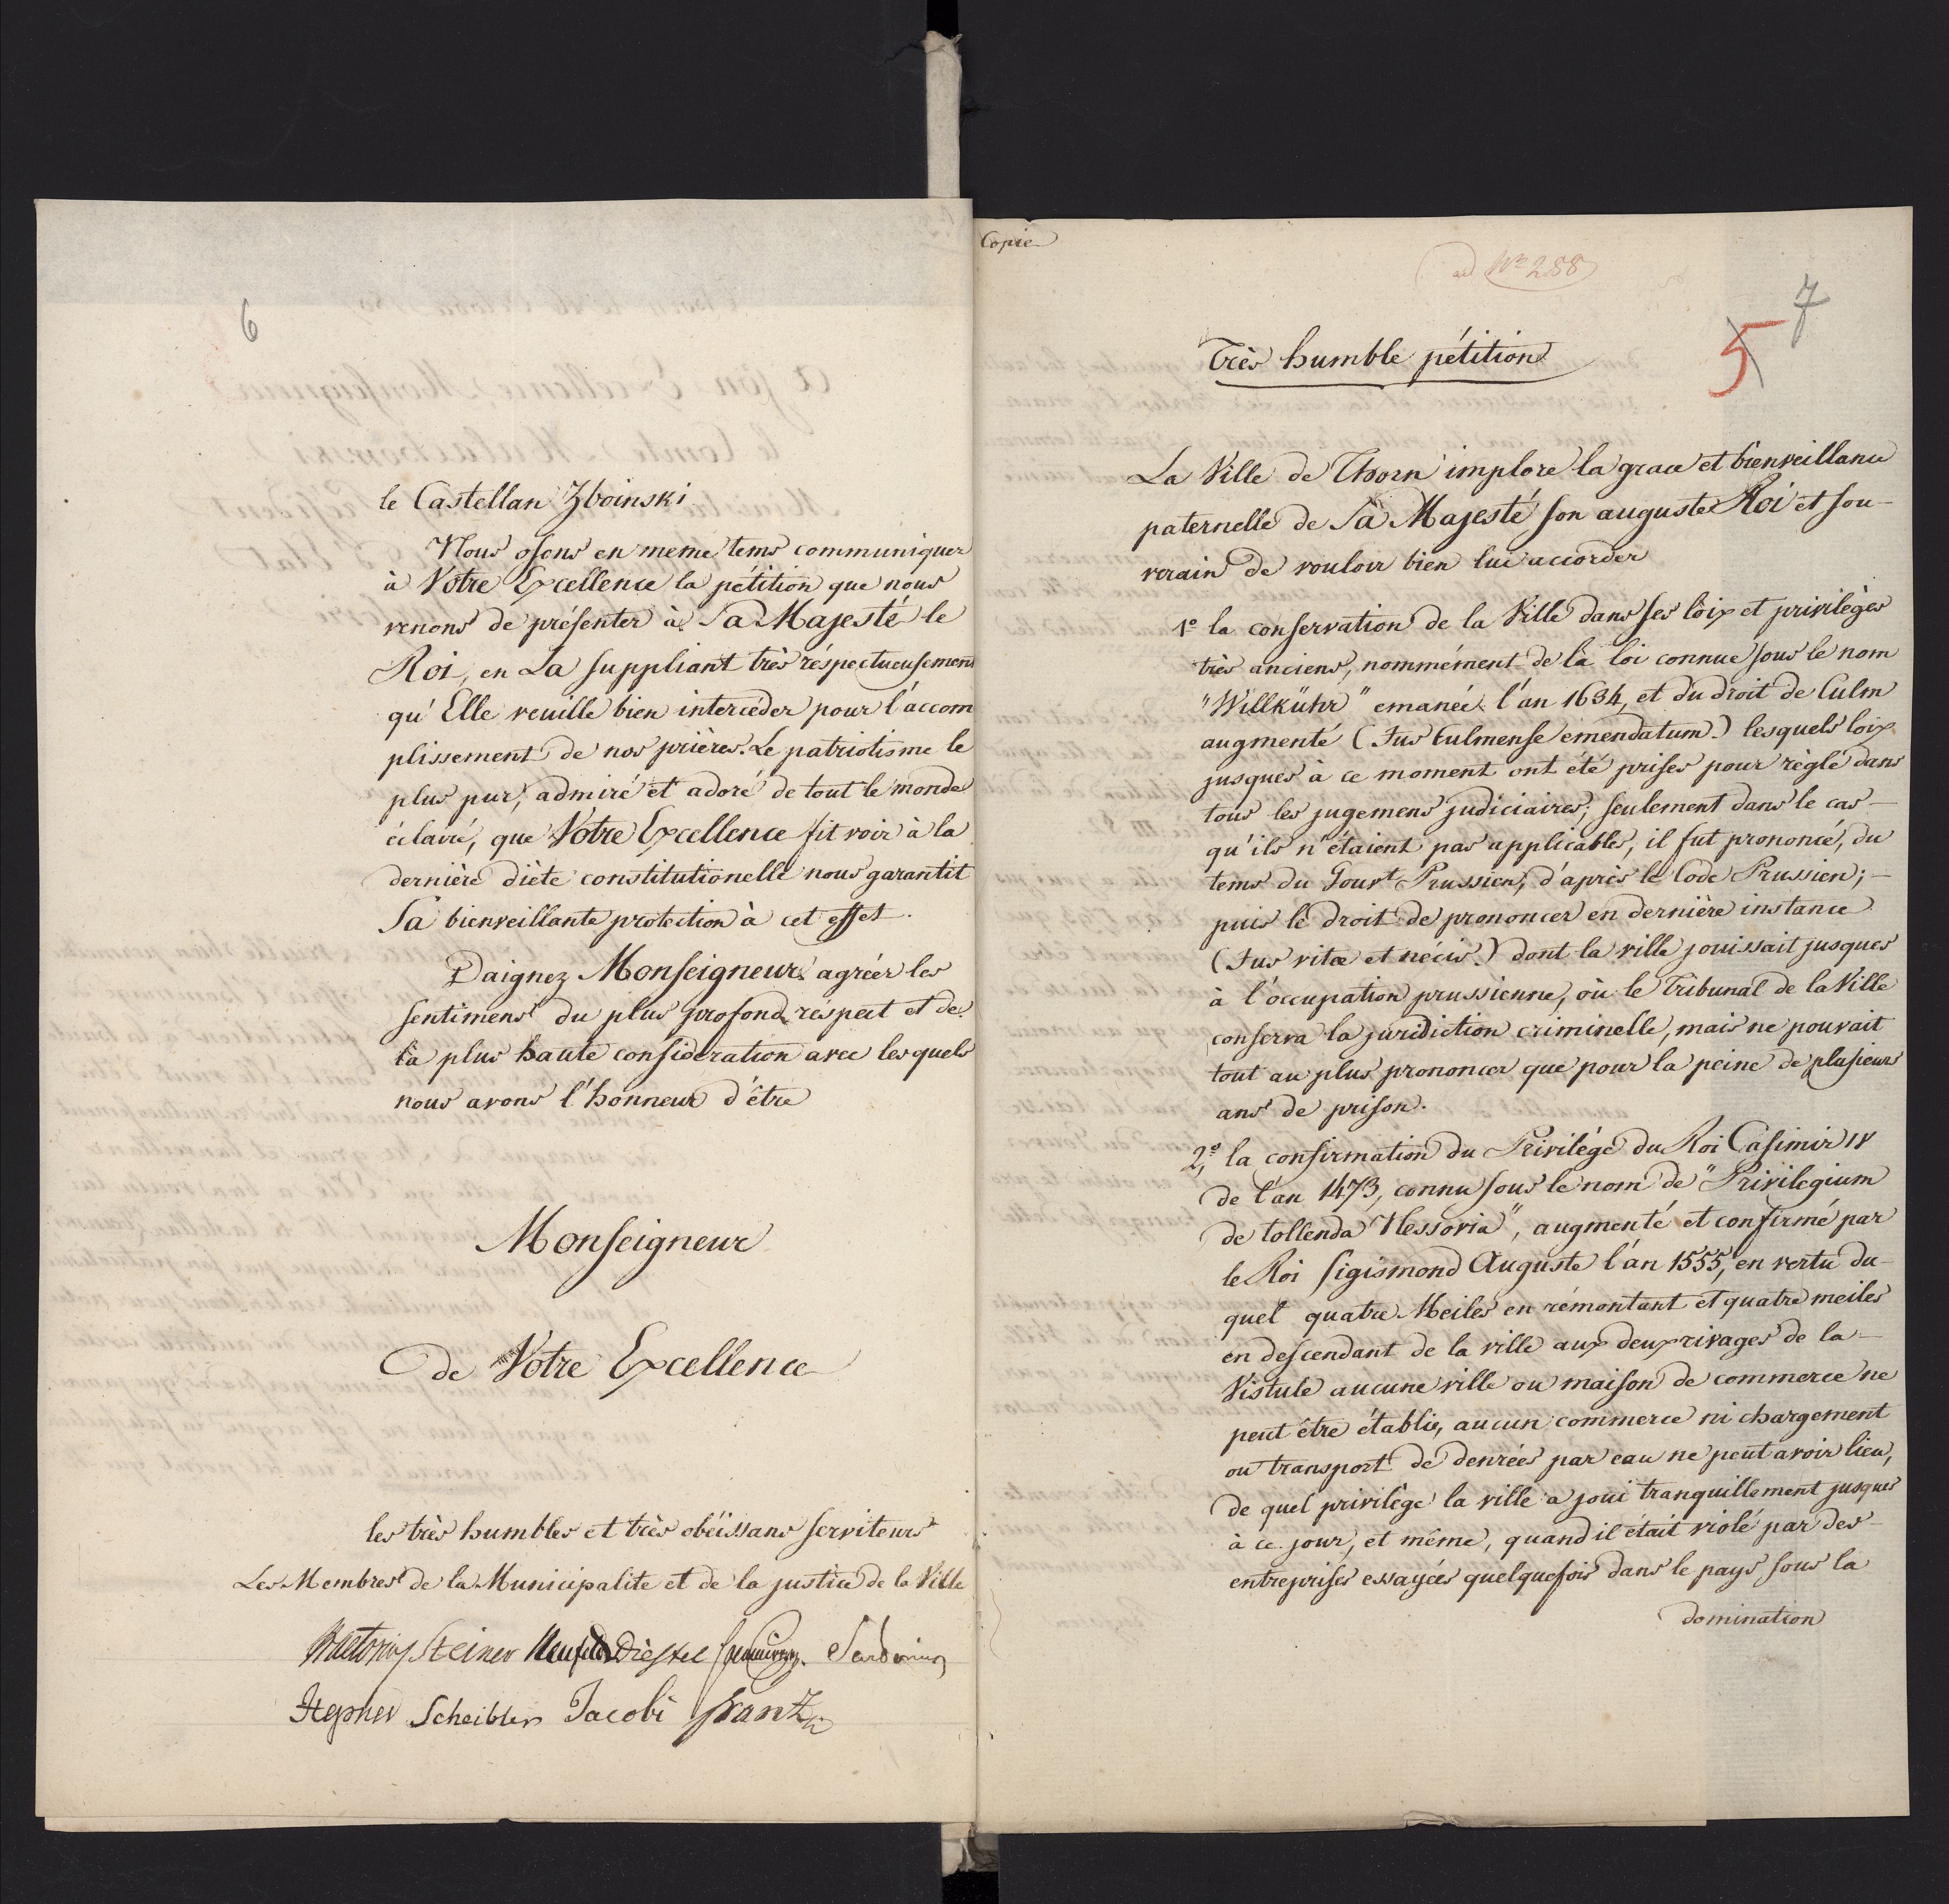 6
le Castellan Zboinski
Nous osons en meme tems communiquer
à Votre Excellence la pétition que nous
venons de présenter à Sa Majesté le
Roi, en La suppliant très réspectueusement
qu'Elle veuille bien intercéder pour l'accom
plissement de nos prières. Le patriotisme le
plus pur, admiré et adoré de tout le monde
éclairé, que Votre Excellence fit voir à la
dernière diète constitutionelle nous garantit
Sa bienveillante protection à cet effet.
Daignez Monseigneur agréer les
sentimens du plus profond réspect et de
la plus haute consideration avec lesquels
nous avons l'honneur d'être
Monseigneur
de Votre Excellence
les très humbles et très obéissans serviteurs
Les Membres de la Municipalite et de la justice de la Ville
Praetorius Steiner Diestel
Scheibler Jacobi Frantz
Copie
ad Nro 288
7
5
Très humble pétition
La Ville de Thorn implore la grace et bienveillance
paternelle de Sa Majesté son auguste Roi et sou-
verain de vouloir bien lui accorder
1o la conservation de la Ville dans ses loix et privilèges
très anciens, nommément de la loi connue sous le nom
"Willkühr" emanée l'an 1634, et du droit de Culm
augmenté (Jus Culmense emendatum.) lesquels loix
jusques à ce moment ont été prises pour règle dans
tous les jugemens judiciaires; seulement dans le cas-
qu'ils n'étaient pas applicables, il fut prononcé, du
tems du Gouvt Prussien, d'après le Code Prussien; -
puis le droit de prononcer en dernière instance
(Jus vitæ et nécis.) dont la ville jouissait jusques
à l'occupation prussienne, où le Tribunal de la Ville
conserva la juridiction criminelle, mais ne pouvait
tout au plus prononcer que pour la peine de plusieurs
ans de prison.
2o, la confirmation du Privilége du Roi Casimir IV
de l'an 1473, connu sous le nom de "Privilegium
de tollenda Nessovia", augmenté et confirmé par
le Roi Sigismond Auguste l'an 1555, en vertu du-
quel quatre Meiles en rémontant et quatre meiles
en descendant de la ville aux deux rivages de la -
Vistule aucune ville ou maison de commerce ne
peut être établie, aucun commerce ni chargement
ou transport de denrées par eau ne peut avoir lieu,
de quel privilège la ville a joui tranquillement jusques
à ce jour, et même, quand il était violé par des-
entreprises essayées quelquefois dans le pays sous la
domination